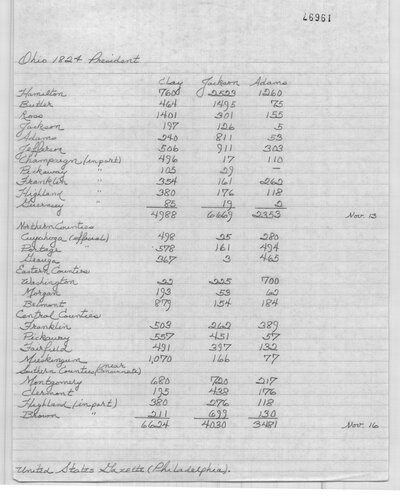 19691
Ohio 1824 President
Clay Jackson Adams
Hamilton 760 2533 1260
Butler 464 1495 75
Ross 1401 301 155
Jackson 197 126 5
Adams 240 811 53
Jefferson 506 911 303
Champaign (in part) 496 17 110
Pickaway " 105 29 —
Franklin " 354 161 262
Highland " 380 176 118
Guernsey " 85 19 2
4988 6669 2353 Nov. 13
Northern Counties
Cuyahoga (official) 498 25 280
Portage " 578 161 494
Geauga 367 3 465
Eastern Counties
Washington 22 225 700
Morgan 193 53 62
Belmont 879 154 184
Central Counties
Franklin 503 262 389
Pickaway 557 451 57
Fairfield 491 397 132
Muskingum 1,070 166 77
Southern Counties (near Cincinnati)
Montgomery 680 720 217
Clermont 195 438 176
Highland (in part) 380 276 118
Brown " 211 699 130
6624 4030 3481 Nov. 16
United States Gazette (Philadelphia).